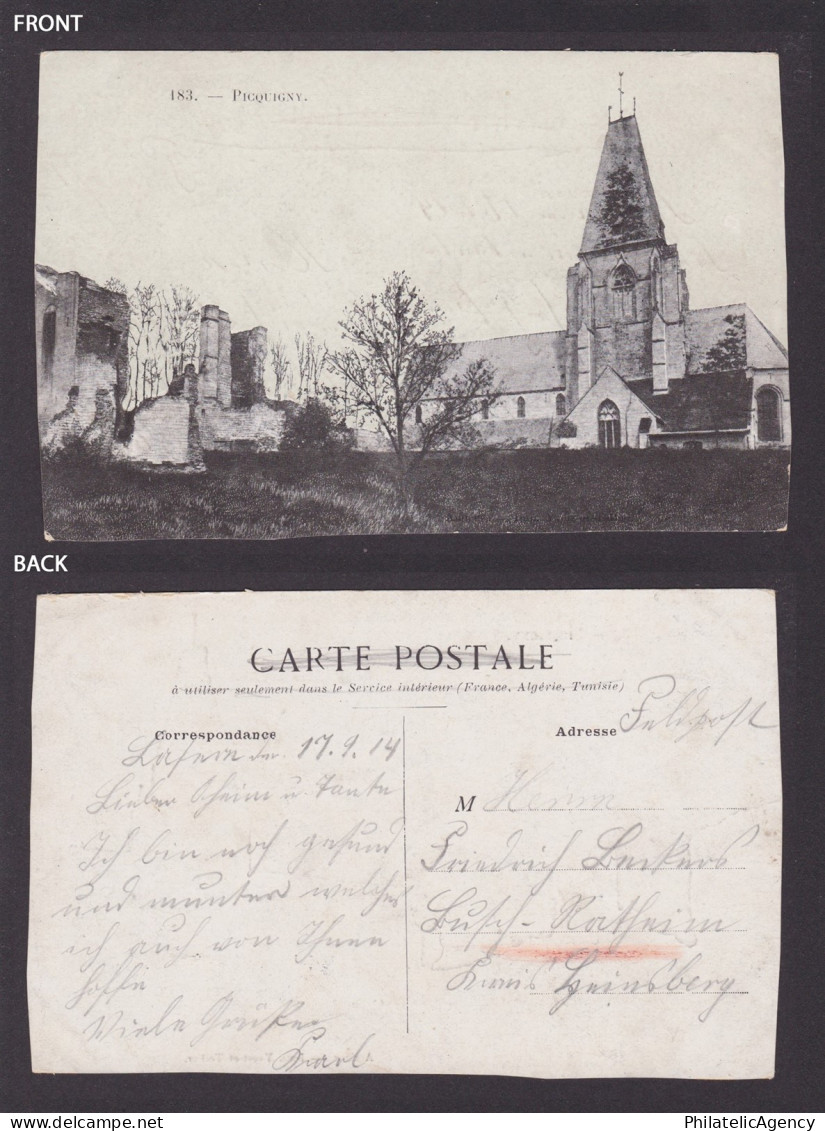 FRONT
183. — PICQUIGNY.
BACK
CARTE POSTALE
à utiliser seulement dans le Service intérieur (France, Algérie, Tunisie)
Feldpost
Correspondance
Adresse
den 17.9.14
Lieber Oheim u. Tante
Ich bin noch gesund
und munter welches
ich auch von Ihnen
hoffe
Viele Grüße
Karl
M Herrn
Friedrich Beckers
Busch-Ratheim
Kreis Heinsberg
PhilatelicAgency